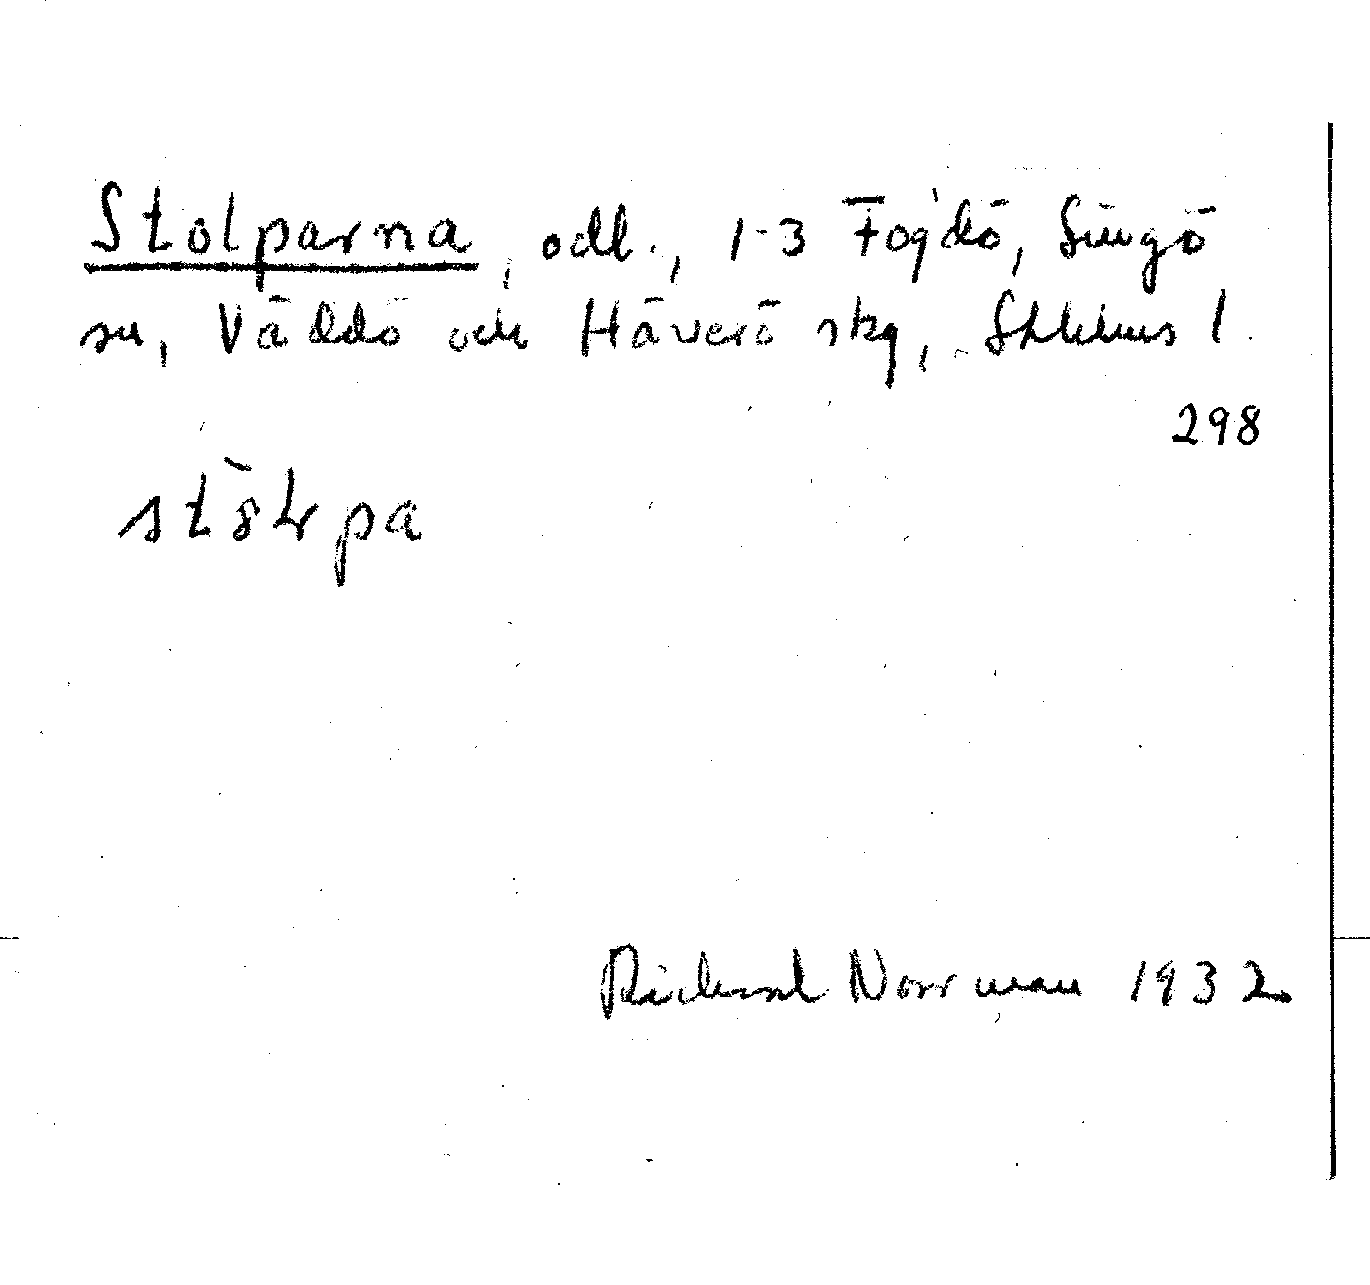 Stolparna, odl., 1-3 Fogdö, Singö
sn, Väddö och Häverö skg, Sthlms l.
298
Rickard Norrman 1932